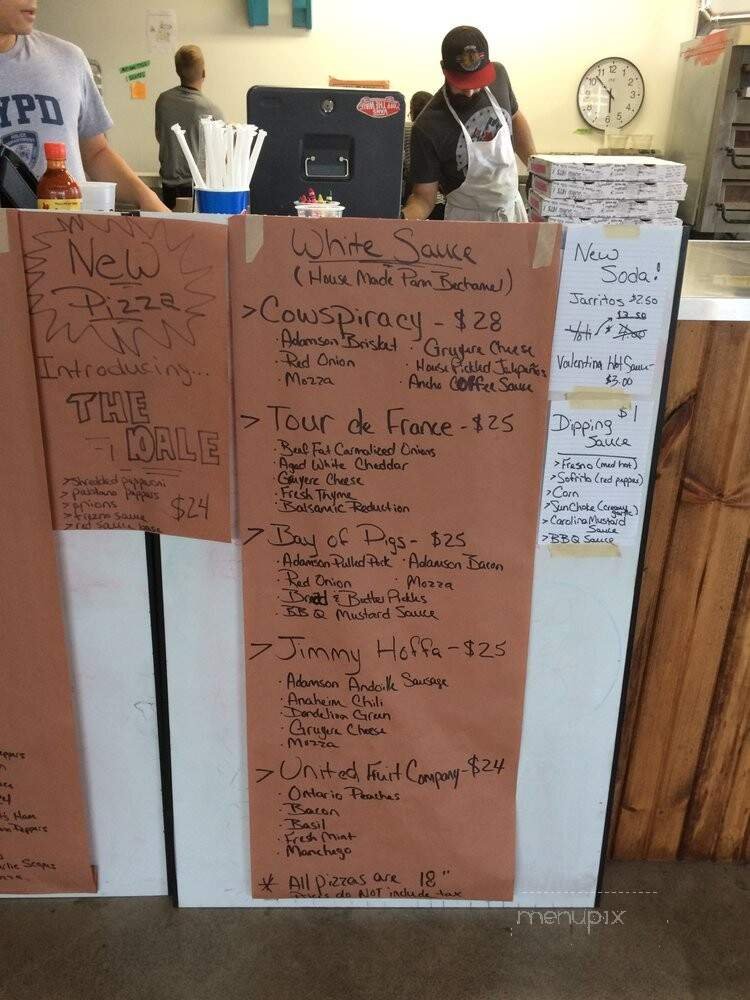 YPD
New
Pizza
Introducing...
THE
DALE
> Shredded pepperoni
> poblano peppers
> onions
> fresno sauce
> red sauce base
$24
White Sauce
(House Made Parm Bechamel)
> Cowspiracy - $28
· Adamson Brisket
· Red Onion
· Mozza
· Gruyere Cheese
· House Pickled Jalapeños
· Ancho Coffee Sauce
> Tour de France - $25
· Beef Fat Carmalized Onions
· Aged White Cheddar
· Gruyere Cheese
· Fresh Thyme
· Balsamic Reduction
> Bay of Pigs - $25
· Adamson Pulled Pork · Adamson Bacon
· Red Onion · Mozza
· Bread & Butter Pickles
· BBQ Mustard Sauce
> Jimmy Hoffa - $25
· Adamson Andoille Sausage
· Anaheim Chili
· Dandelion Green
· Gruyere Cheese
· Mozza
> United Fruit Company - $24
· Ontario Peaches
· Bacon
· Basil
· Fresh Mint
· Manchego
* All pizzas are 18"
Prices do NOT include tax
New
Soda!
Jarritos $2.50
$3.50
Valentina Hot Sauce
$3.00
Dipping $1
Sauce
> Fresno (med hot)
> Sofrito (red pepper)
> Corn
> SunChoke (creamy garlic)
> Carolina Mustard
Sauce
> BBQ Sauce
Ham
Peppers
Scapes
menupix